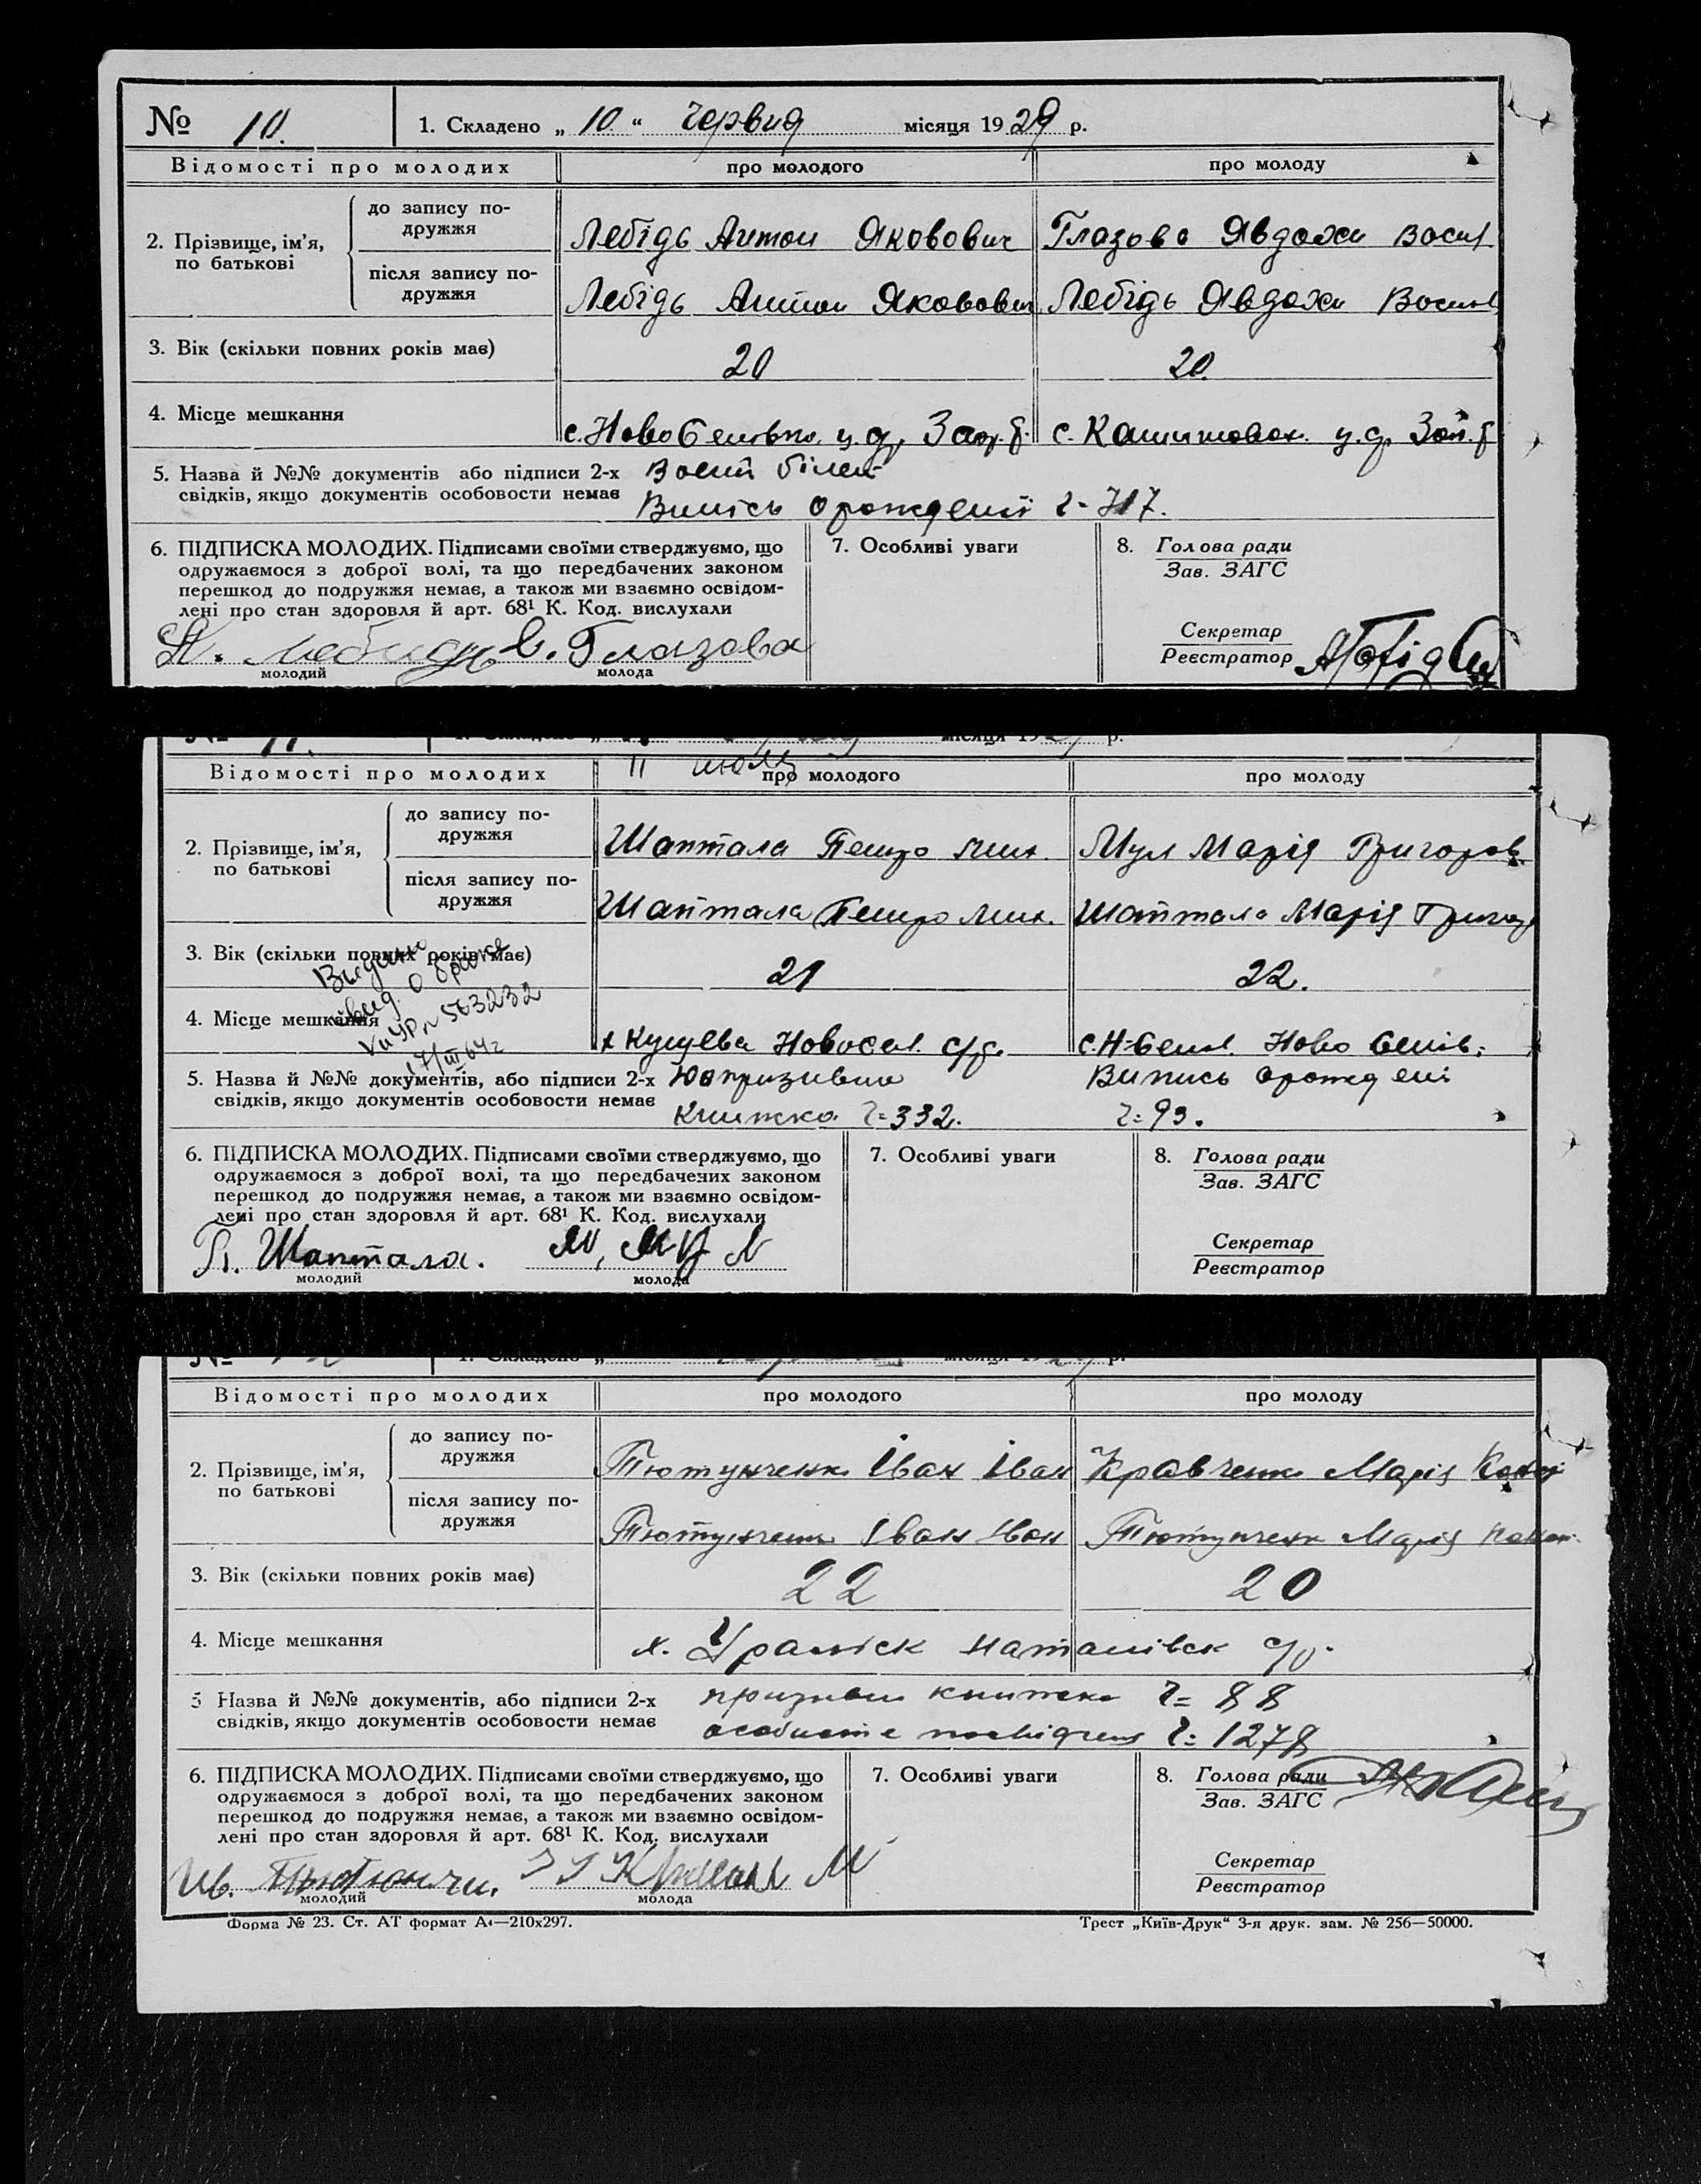 № 10. 1. Складено „ 10 “ Червня місяця 1929 р.
Відомості про молодих про молодого про молоду
2. Прізвище, ім’я, по батькові
до запису подружжя Лебідь Антон Якович Глазова Явдоха Васил
після запису подружжя Лебідь Антон Якович Лебідь Явдоха Васил
3. Вік (скільки повних років має) 20 20.
4. Місце мешкання с. Ново с. у.д.
5. Назва й №№ документів або підписи 2-х Воєний білет
свідків, якщо документів особовости немає Випісь орождении ч- 717.
6. ПІДПИСКА МОЛОДИХ. Підписами своїми стверджуємо, що 7. Особливі уваги 8. Голова ради
одружаємося з доброї волі, та що передбачених законом Зав. ЗАГС
перешкод до подружжя немає, а також ми взаємно освідом-
лені про стан здоровля й арт. 68¹ К. Код. вислухали
Секретар
А. Лебидь Є. Глазова Реєстратор
молодий молода
№ 11. 1. Складено „ місяця р.
11 июля
Відомості про молодих про молодого про молоду
2. Прізвище, ім’я, по батькові
до запису подружжя Шаптала Петро Мих. Мул Марія Григоров.
після запису подружжя Шаптала Петро Мих. Шаптала Марія Григор
3. Вік (скільки повних років має) 21 22.
Выдано
свид. о браке
№ 563232
17/III 64г
4. Місце мешкання х Новосел. с/р. с. Ново
5. Назва й №№ документів, або підписи 2-х Випись орождені
свідків, якщо документів особовости немає Книжка ч=332. ч=93.
6. ПІДПИСКА МОЛОДИХ. Підписами своїми стверджуємо, що 7. Особливі уваги 8. Голова ради
одружаємося з доброї волі, та що передбачених законом Зав. ЗАГС
перешкод до подружжя немає, а також ми взаємно освідом-
лені про стан здоровля й арт. 68¹ К. Код. вислухали
Секретар
П. Шаптала. М. Мул Реєстратор
молодий молода
№ 12 1. Складено „ місяця р.
Відомості про молодих про молодого про молоду
2. Прізвище, ім’я, по батькові
до запису подружжя Тютунченк Іван Іван Кравченко Марія
після запису подружжя Тютунченк Іван Іван Тютунченк Марія
3. Вік (скільки повних років має) 22 20
4. Місце мешкання х. Наталівск с/р.
5 Назва й №№ документів, або підписи 2-х призивна книжка ч= 88
свідків, якщо документів особовости немає особисте посвідчення ч= 1278
6. ПІДПИСКА МОЛОДИХ. Підписами своїми стверджуємо, що 7. Особливі уваги 8. Голова ради
одружаємося з доброї волі, та що передбачених законом Зав. ЗАГС
перешкод до подружжя немає, а також ми взаємно освідом-
лені про стан здоровля й арт. 68¹ К. Код. вислухали
Секретар
Ив. М Реєстратор
молодий молода
Форма № 23. Ст. АТ формат А4—210х297. Трест „Київ-Друк“ 3-я друк. зам. № 256—50000.